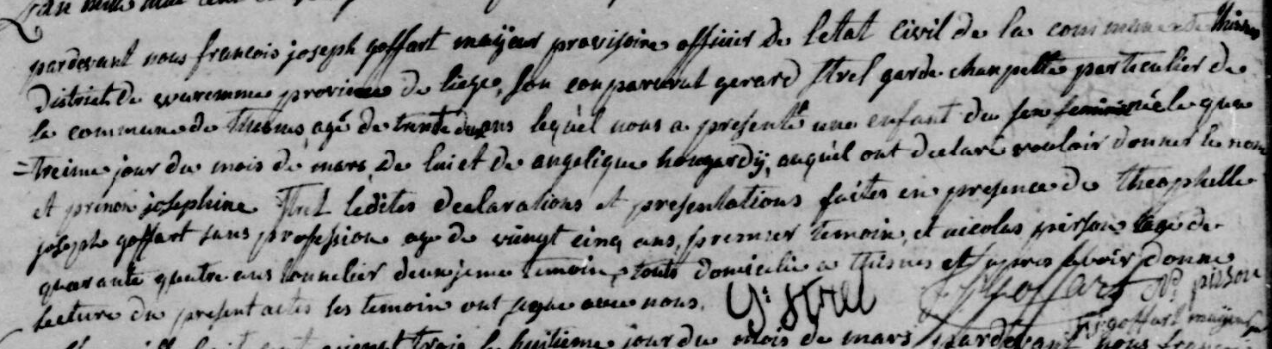 pardevant nous francois joseph goffart mayeur provisoire officier de letat civil de la commune de thisnes
district de waremme province de liege, son comparerat gerard Strel garde champette particulier de
la commune de thisnes agé de trente deux ans lequel nous a presenté une enfant du sex feminin née le qua
=treime jour du mois de mars, de lui et de angelique hougardÿ, auquel ont declaré vouloir donner le nom
et prenon josephine Strel ledites declarations et presentations faites en presence de theophille
joseph goffart sans profession age de vingt cinq ans, premier temoin, et nicolas pirson agé de
quarante quatre ans tonnelier deuxieme temoin, touts domicilié a thisnes et apres avoir donne
lecture du present actes les temoin ont signe avec nous. G: Strel goffart N. pirson
goffart mayeur
trois le huitieme jour du mois de mars pardevant nous francois